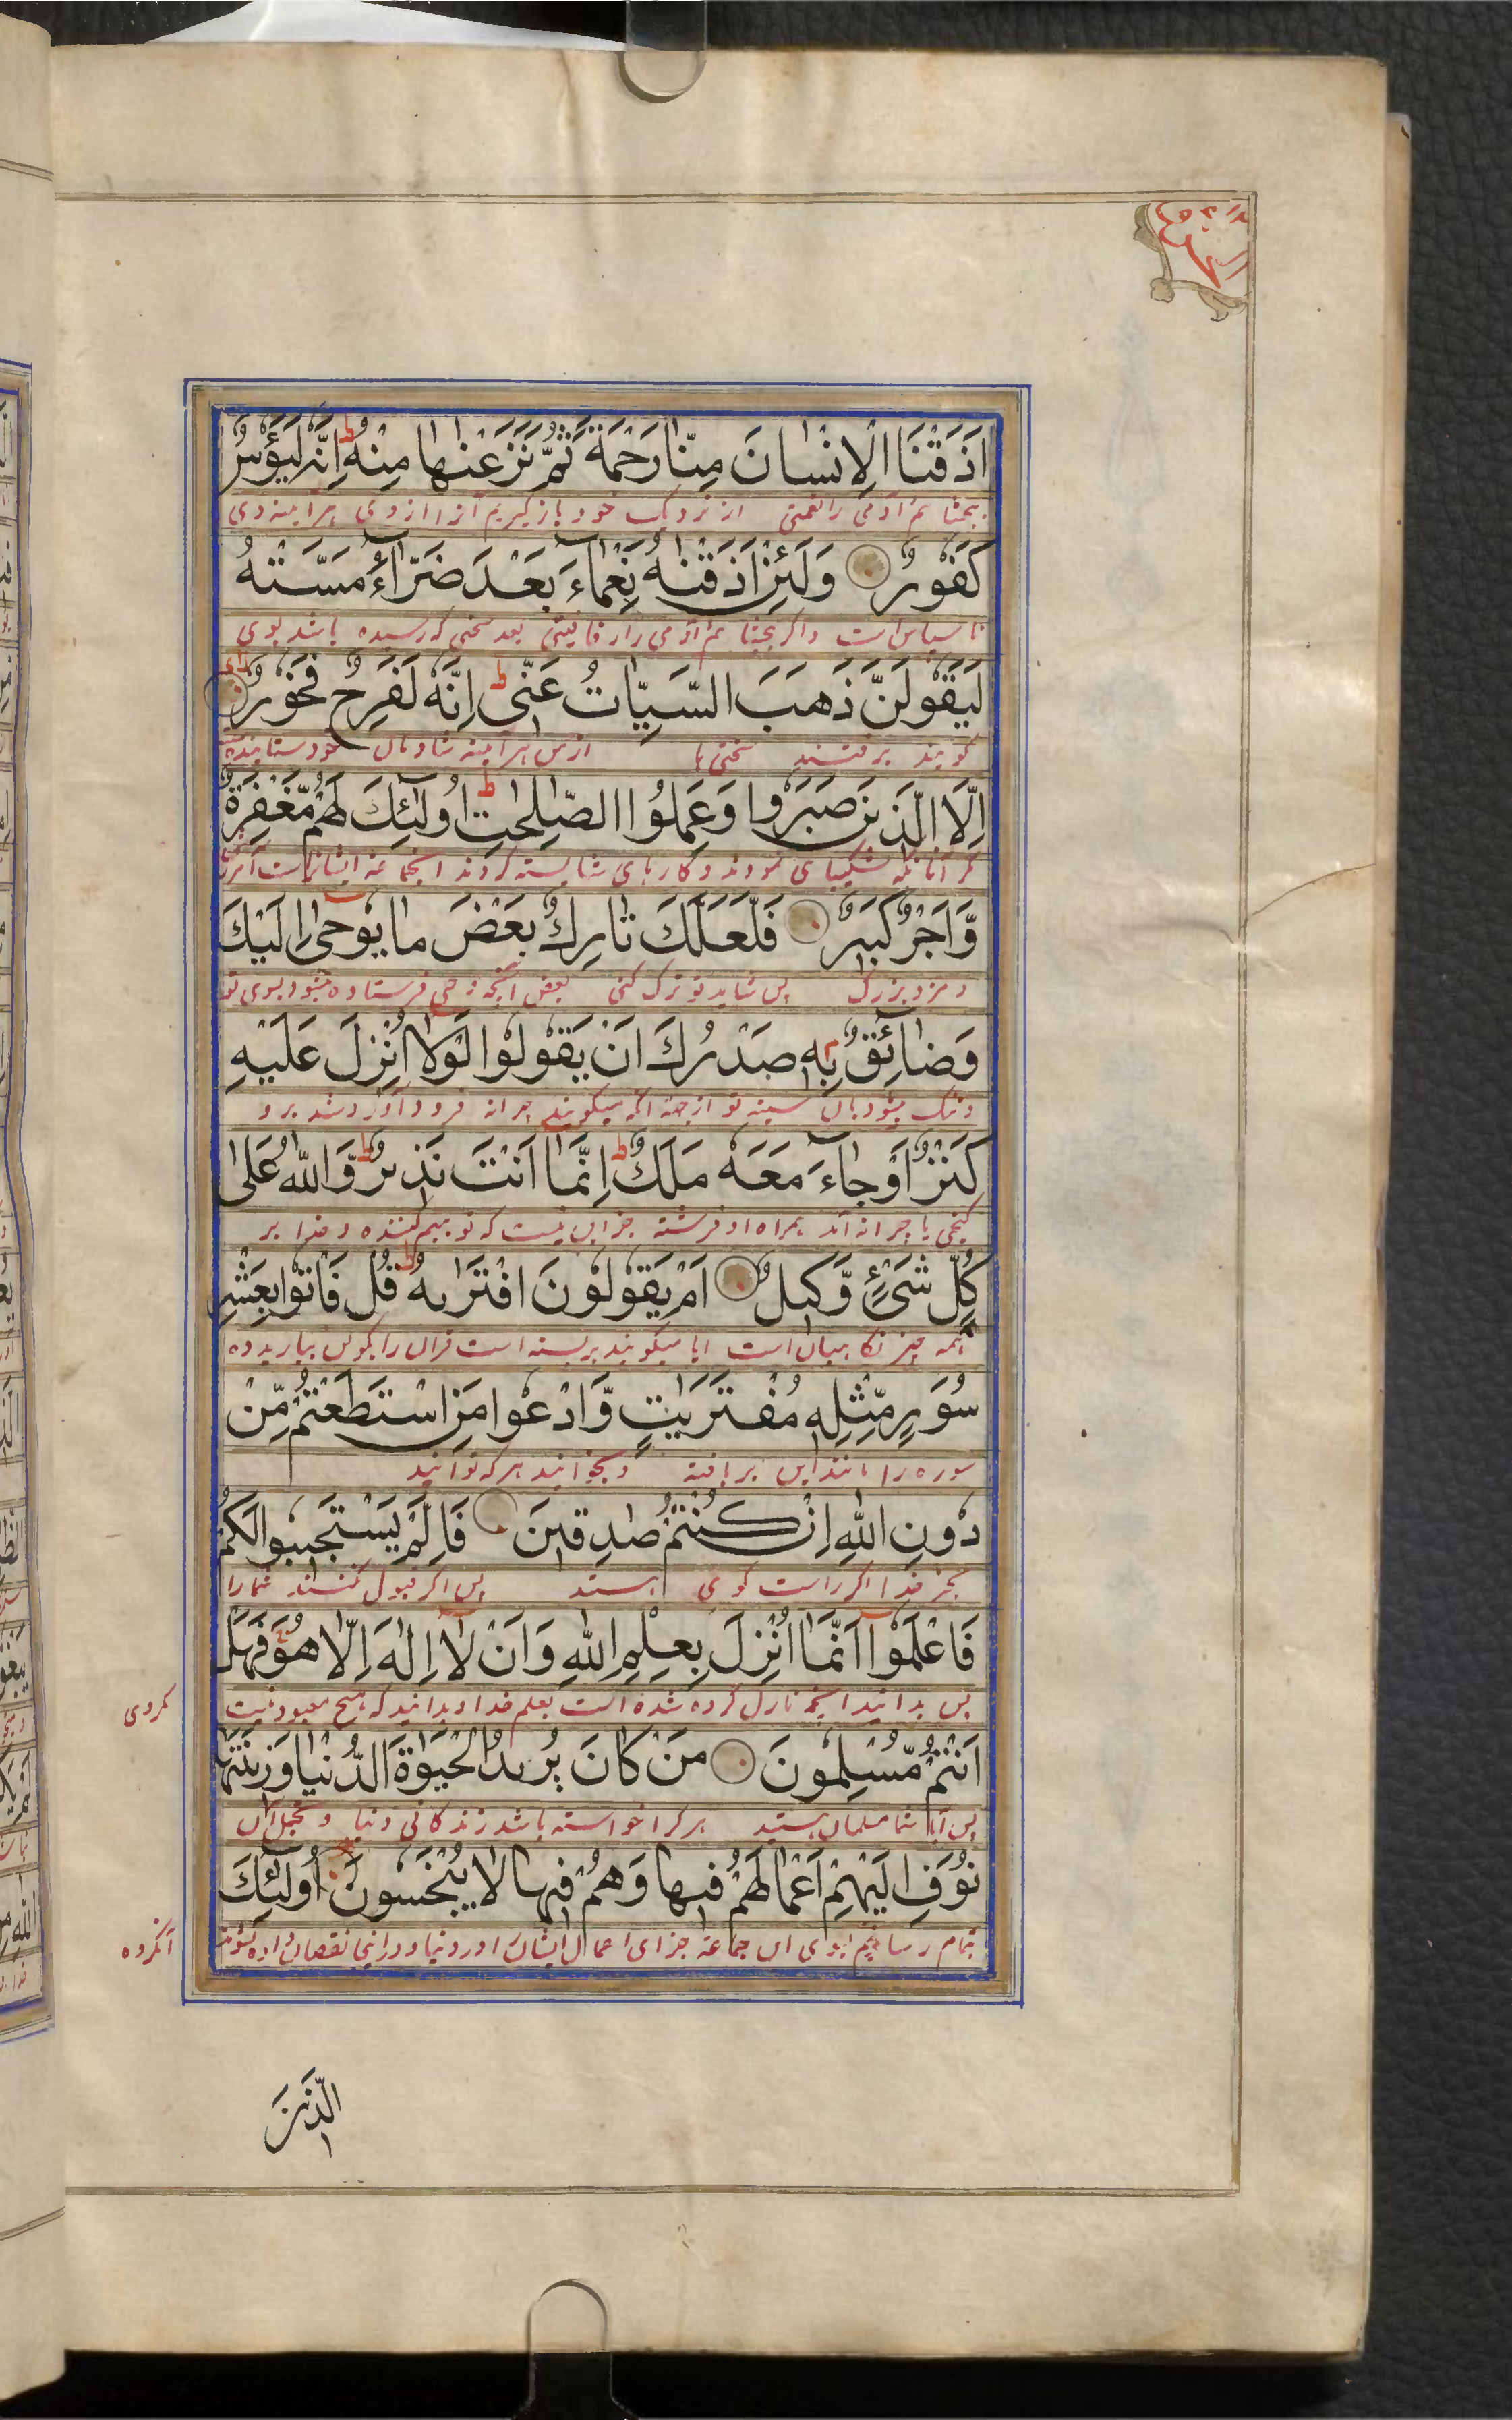 اَذَقْنَا الْاِنْسَانَ مِنَّا رَحْمَةً ثُمَّ نَزَعْنٰهَا مِنْهُ اِنَّهٗ لَيَؤُسٌ
بچشانم آدمی را نعمتی از نزدیک خود باز گیریم آنرا ازوی هرآینه وی
كَفُوْرٌ وَلَئِنْ اَذَقْنٰهُ نَعْمَآءَ بَعْدَ ضَرَّآءَ مَسَّتْهُ
ناسپاس است و اگر بچشانم آدمی را رفاهیتی بعد سختی که رسیده باشد بوی
لَيَقُوْلَنَّ ذَهَبَ السَّيِّاٰتُ عَنِّى ط اِنَّهٗ لَفَرِحٌ فَخُوْرٌ
گویند برفتند سختی‌ها از من هرآینه شادمان خود ستاینده
اِلَّا الَّذِينَ صَبَرُوا وَعَمِلُوا الصّٰلِحٰتِ ط اُولٰٓئِكَ لَهُمْ مَّغْفِرَةٌ
مگر آنانکه شکیبای نمودند و کارهای شایسته کردند اینجماعه ایشانراست
وَّاَجْرٌ كَبِيرٌ فَلَعَلَّكَ تَارِكٌ بَعْضَ مَا يُوْحٰى اِلَيْكَ
و مزد بزرگ پس شاید تو ترک کنی بعض آنچه وحی فرستاده میشود بسوی تو
وَضَآئِقٌ بِهٖ صَدْرُكَ اَنْ يَقُوْلُوْا لَوْلَا اُنْزِلَ عَلَيْهِ
و تنگ میشود بان سینه تو از جهت آنکه میگویند چرا نه فرود آورده شد برو
كَنْزٌ اَوْ جَآءَ مَعَهٗ مَلَكٌ ط اِنَّمَا اَنْتَ نَذِيرٌ ط وَّاللهُ عَلٰى
گنجی یا چرا نه آمد همراه او فرشته جز این نیست که تو بیم کننده و خدا بر
كُلِّ شَىْءٍ وَّكِيلٌ اَمْ يَقُوْلُوْنَ افْتَرٰىهُ ط قُلْ فَاْتُوْا بِعَشْرِ
همه چیز نگاهبان است ایا میگویند بربسته است قرآن را بگو پس بیارید ده
سُوَرٍ مِّثْلِهٖ مُفْتَرَيٰتٍ وَّادْعُوْا مَنِ اسْتَطَعْتُمْ مِّنْ
سوره را مانند این بر بافته و بخوانید هر که توانید
دُوْنِ اللهِ اِنْ كُنْتُمْ صٰدِقِينَ فَاِلَّمْ يَسْتَجِيبُوا لَكُمْ
بجز خدا اگر راست گوی هستید پس اگر قبول نکنند شما را
فَاعْلَمُوْا اَنَّمَا اُنْزِلَ بِعِلْمِ اللهِ وَاَنْ لَّا اِلٰهَ اِلَّا هُوَ فَهَلْ
پس بدانید اینچه نازل کرده شده است بعلم خدا و بدانید که هیچ معبود نیست
اَنْتُمْ مُّسْلِمُونَ مَنْ كَانَ يُرِيدُ الْحَيٰوةَ الدُّنْيَا وَزِينَتَهَا
پس آیا شما مسلمان هستید هر کرا خواسته باشد زندگانی دنیا و تجمل آن
نُوَفِّ اِلَيْهِمْ اَعْمَالَهُمْ فِيهَا وَهُمْ فِيهَا لَا يُبْخَسُونَ اُولٰٓئِكَ
بتمام رسانیم بسوی این جماعه جزای اعمال ایشان در دنیا و درانجا نقصان داده نشوند
الَّذِينَ